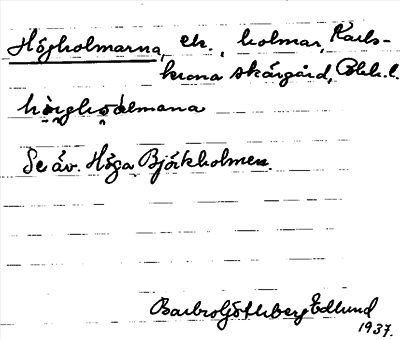 Högholmarna, ek., holmar, Karls-
krona skärgård, Blek. l.
hö̱gho̱ḷmana
Se äv. Höga Björkholmen.
Barbro Götlberg Edlund
1937.